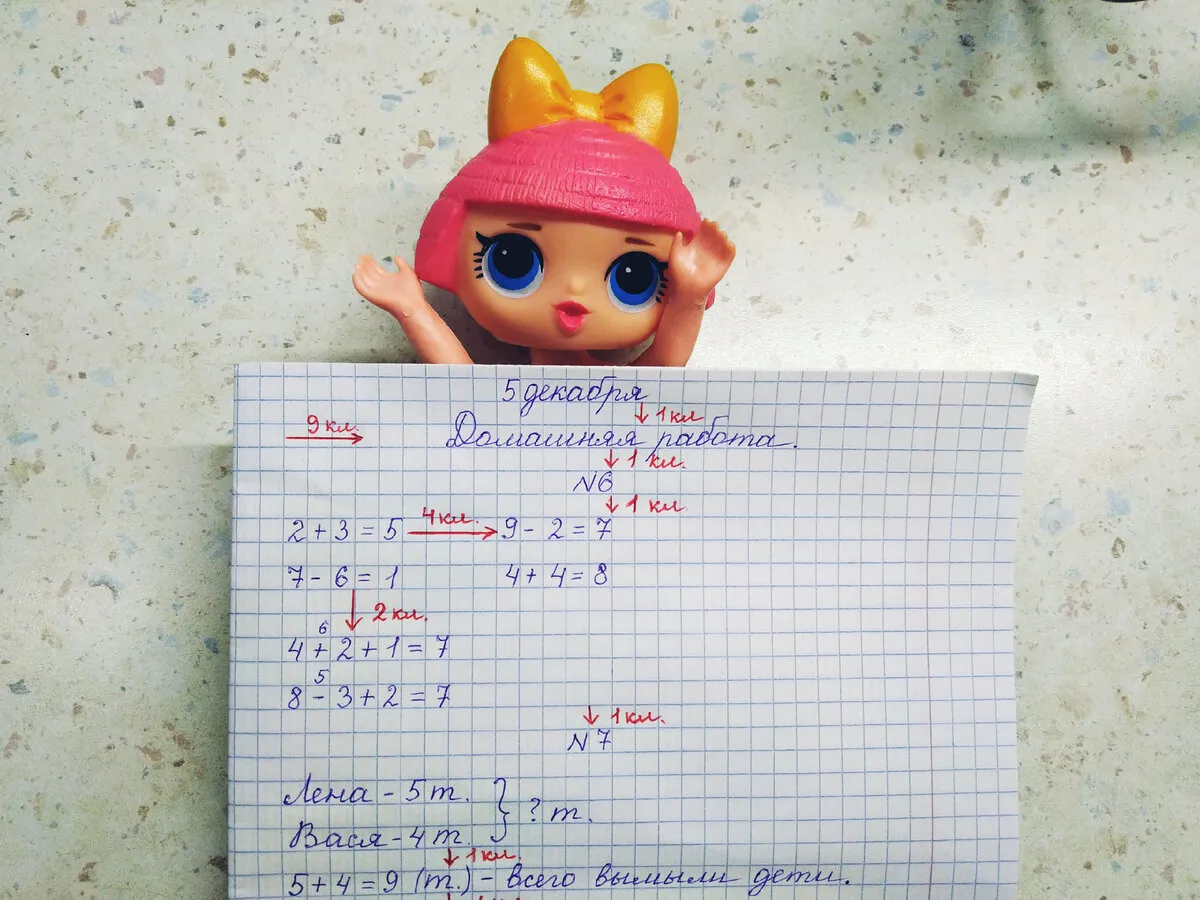 5 декабря
↓ 1 кл
9 кл. Домашняя работа.
↓ 1 кл.
№6
↓ 1 кл.
2 + 3 = 5 4 кл. 9 - 2 = 7
7 - 6 = 1 4 + 4 = 8
↓ 2 кл.
6
4 + 2 + 1 = 7
5
8 - 3 + 2 = 7
↓ 1 кл.
№7
Лена - 5 т.
} ? т.
Вася - 4 т.
↓ 1 кл.
5 + 4 = 9 (т.) - всего вымыли дети.